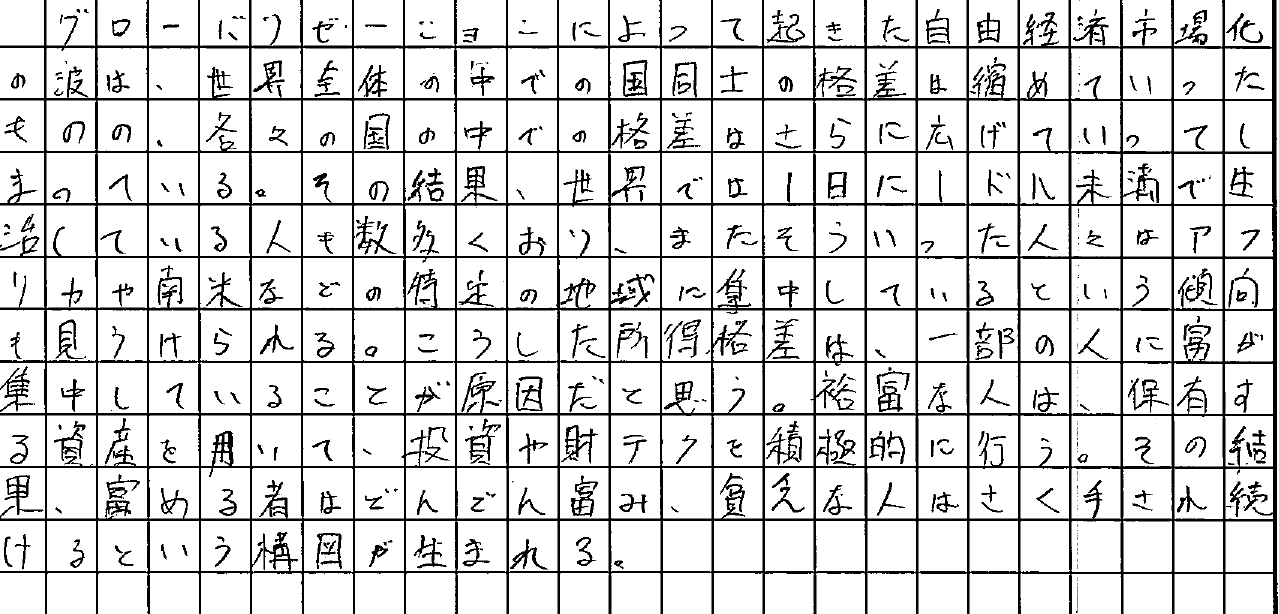 グローバリゼーションによって起きた自由経済市場化
の波は、世界全体の中での国同士の格差は縮めていった
ものの、各々の国の中での格差はさらに広げていってし
まっている。その結果、世界では1日に1ドル未満で生
活している人も数多くおり、またそういった人々はアフ
リカや南米などの特定の地域に集中しているという傾向
も見うけられる。こうした所得格差は、一部の人に富が
集中していることが原因だと思う。裕富な人は、保有す
る資産を用いて、投資や財テクを積極的に行う。その結
果、富める者はどんどん富み、貧乏な人はさく手され続
けるという構図が生まれる。